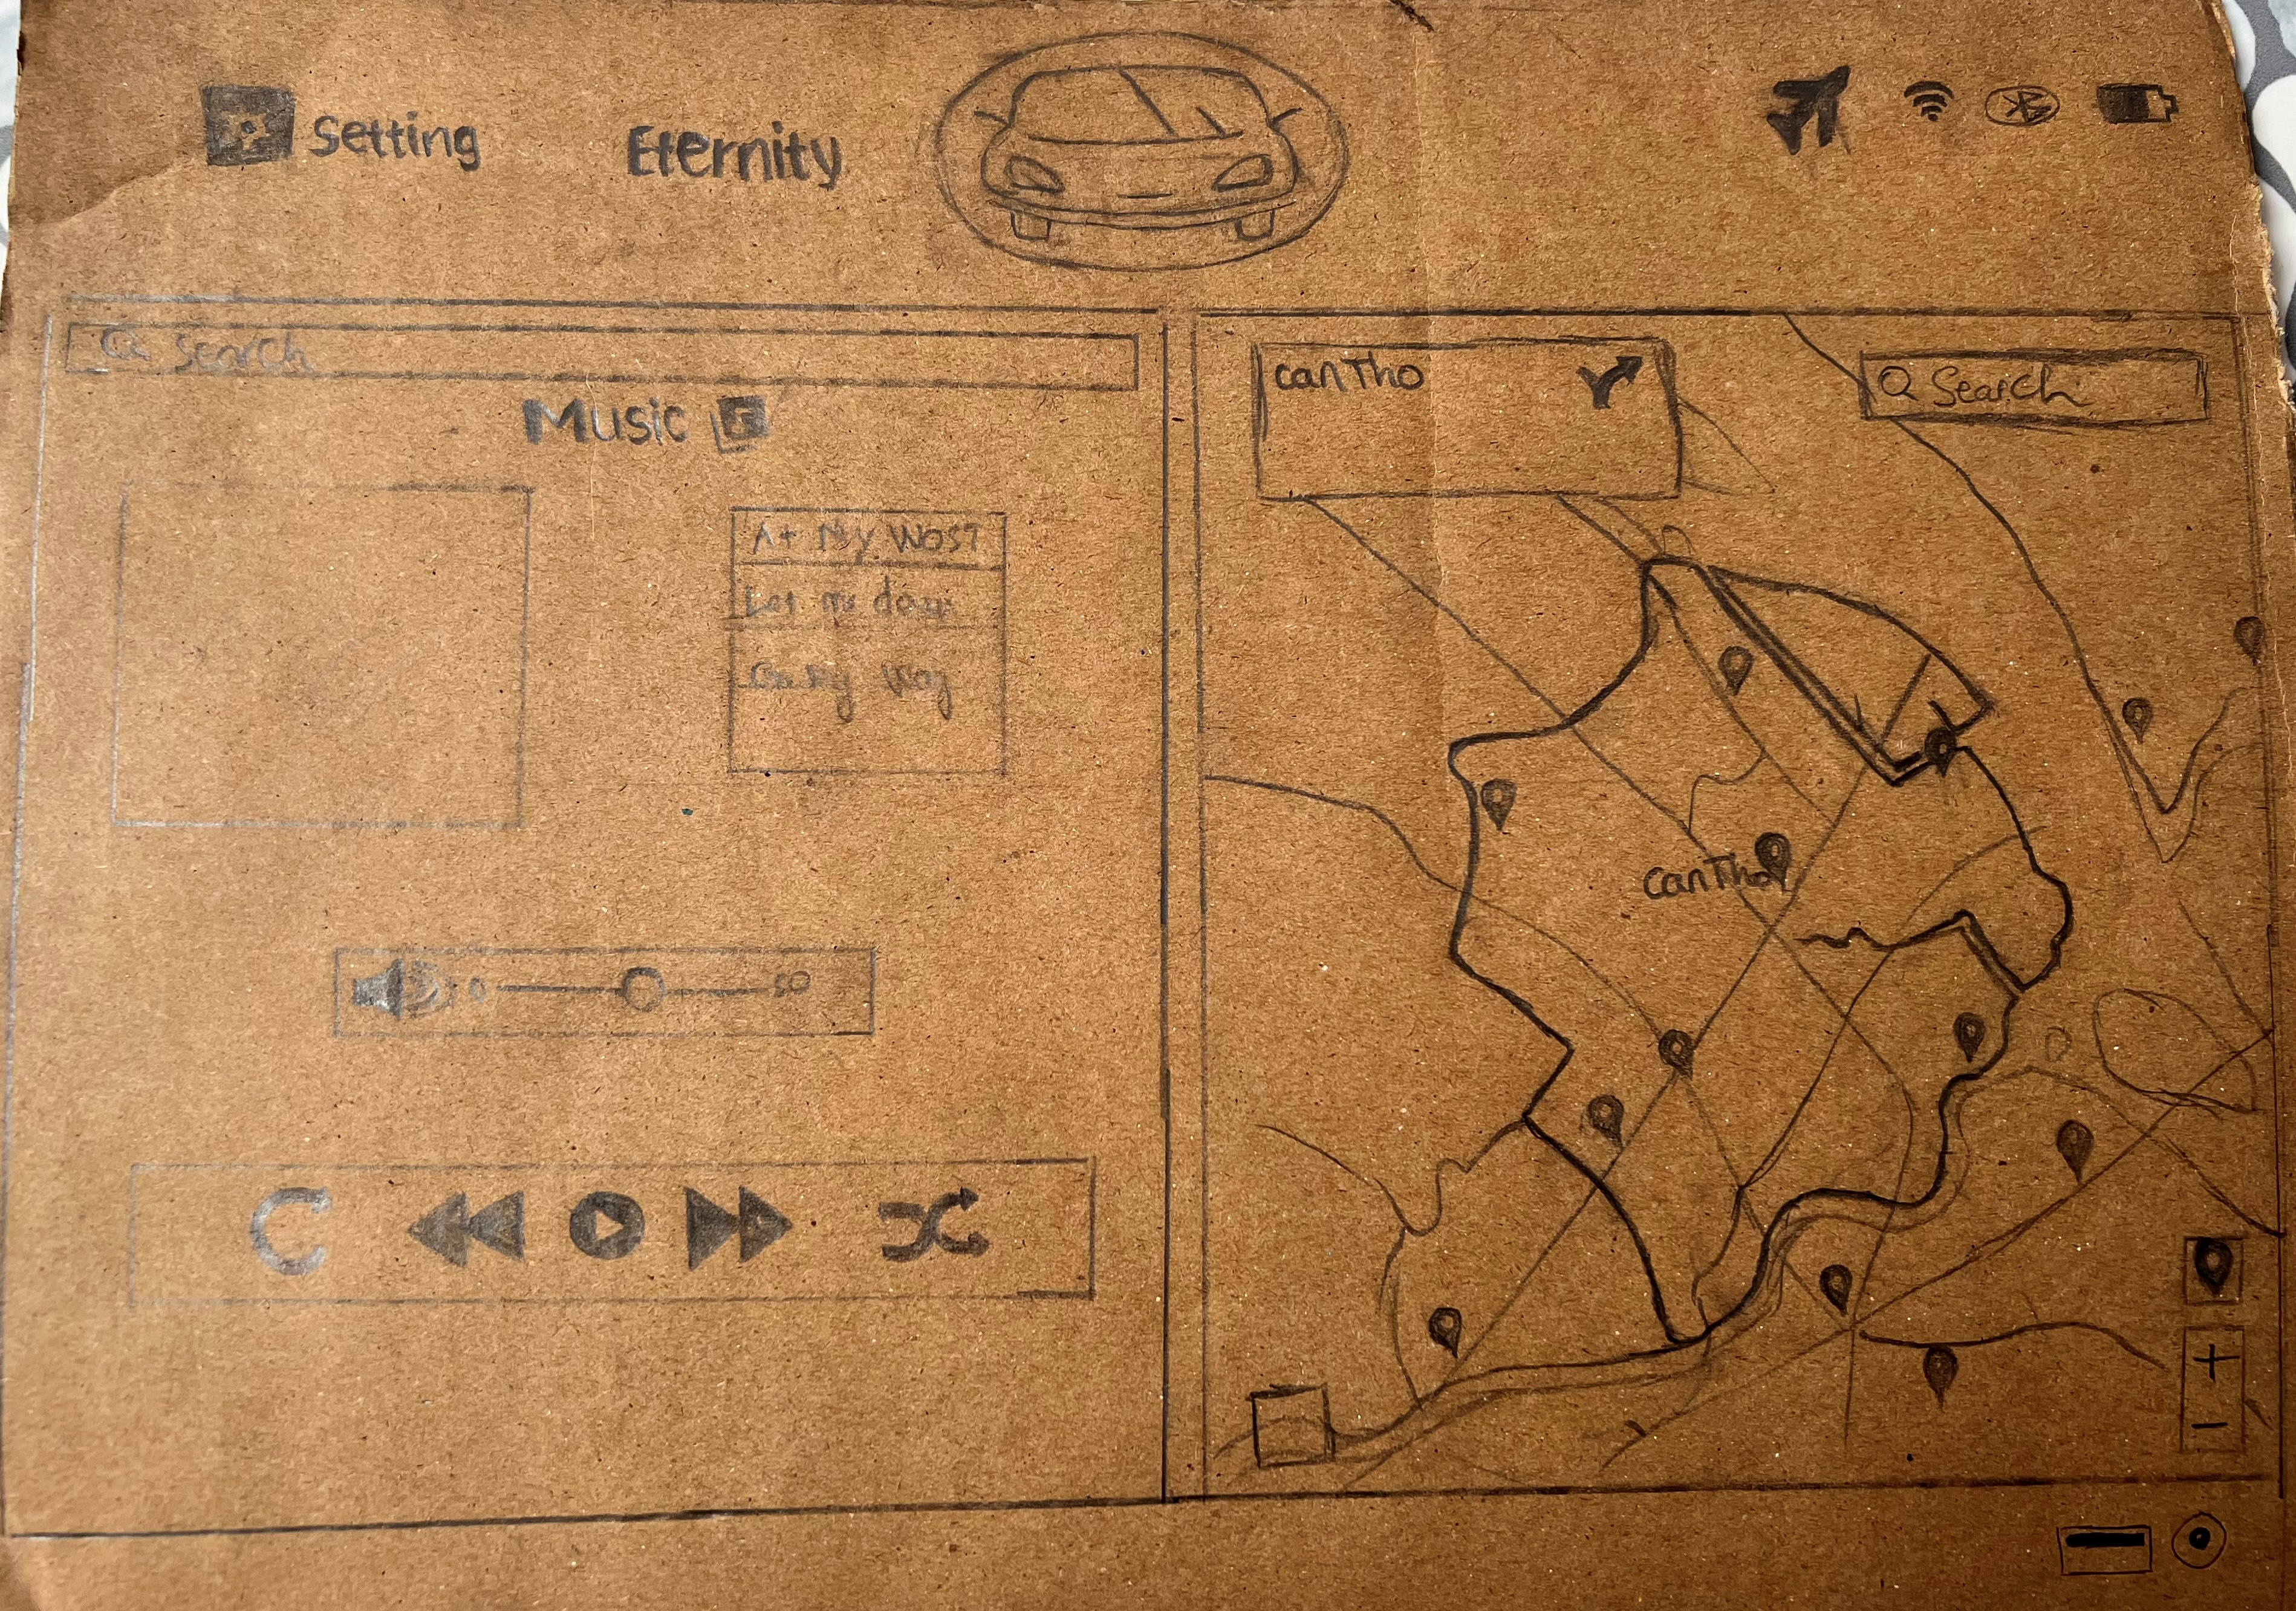 Setting
Eternity
Search
Music
At My Wost
Let me down
On My Way
0 50
CanTho
Search
CanTho
+
-